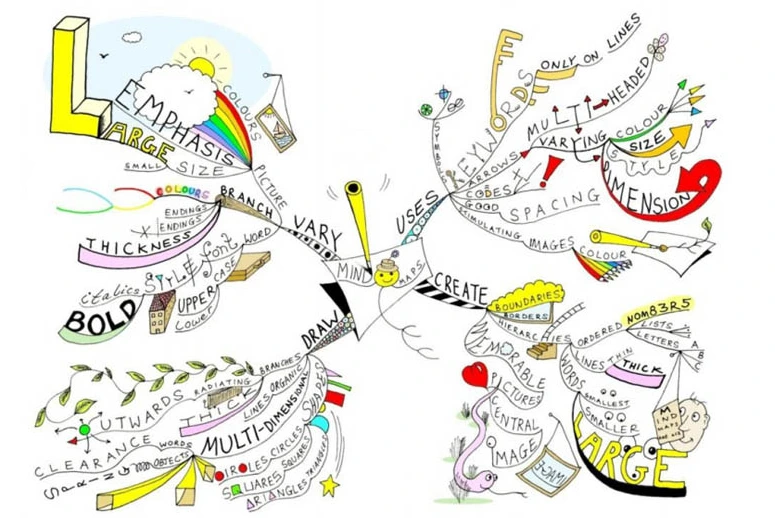 MIND
MAPS
VARY
PICTURE
EMPHASIS
COLOURS
LARGE
SMALL SIZE
BRANCH
COLOURS
ENDINGS
ENDINGS
THICKNESS
STYLE font
italics
BOLD
WORD
CASE
UPPER
Lower
USES
SYMBOLS
KEYWORDS
ONLY ON LINES
ARROWS
MULTI-HEADED
VARYING
COLOUR
SIZE
STYLE
DIMENSION
CODES X !
GOOD SPACING
STIMULATING IMAGES
COLOUR
CREATE
BOUNDARIES
BORDERS
HIERARCHIES
ORDERED
NOM83R5
LISTS
LETTERS
A
B
C
LINES
THIN
THICK
WORDS
SMALLEST
SMALLER
LARGE
MIND
MAPS
MEMORABLE
PICTURES
CENTRAL
IMAGE
DRAW
BRANCHES
RADIATING
OUTWARDS
LINES
ORGANIC
THICK
CLEARANCE
WORDS
OBJECTS
SPACING
MULTI-DIMENSIONAL
SHAPES
CIRCLES CIRCLES
SQUARES SQUARES
TRIANGLES TRIANGLES